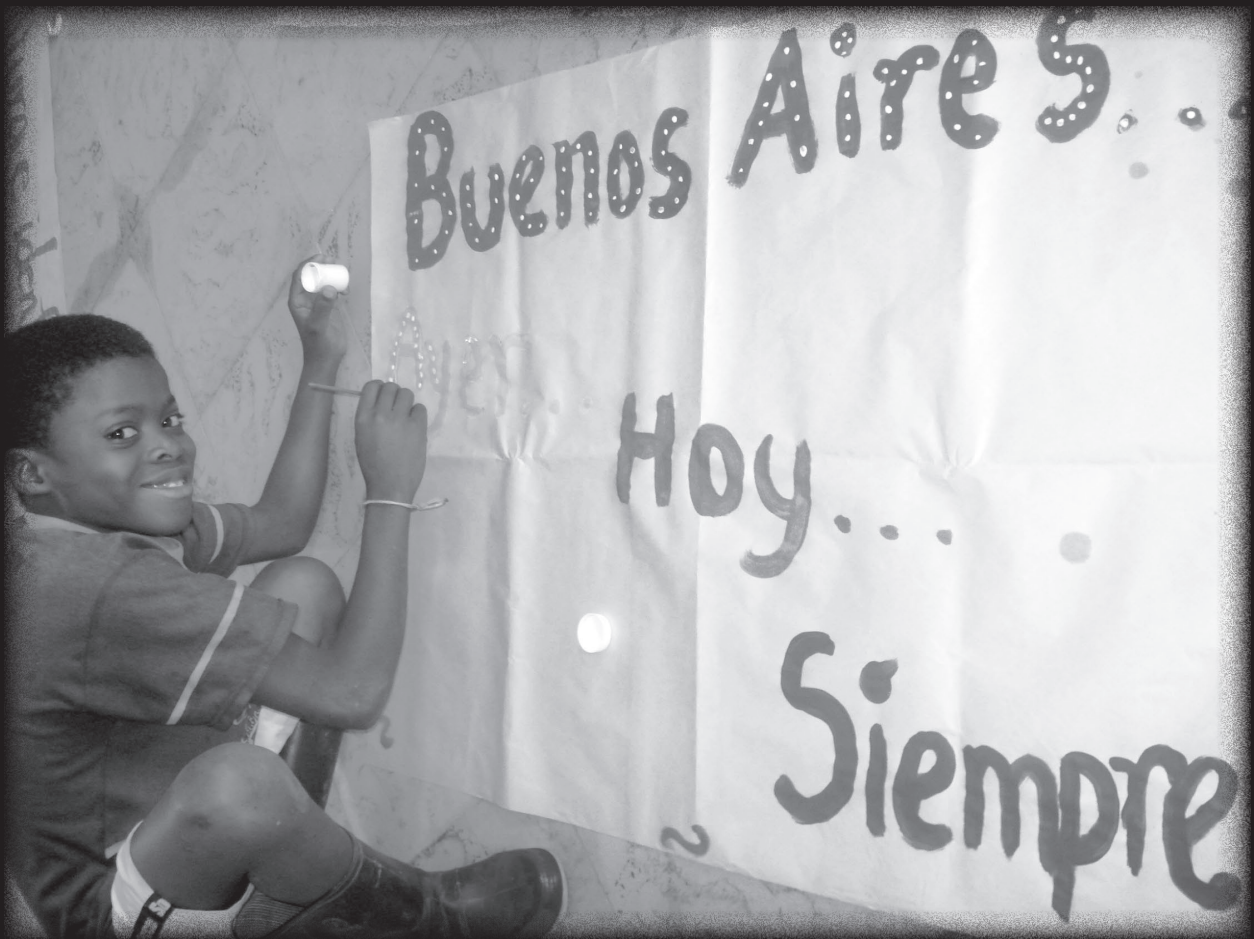 Buenos Aires...
Ayer...
Hoy...
Siempre